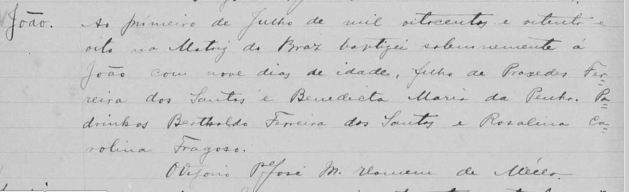 João. Ao primeiro de Julho de mil oitocentos e oitenta e
oito na Matriz do Braz baptizei solemnemente á
João com nove dias de idade, filho de Praxedes Fer-
reira dos Santos e Benedicta Maria da Penha. Pa-
drinhos Bertholdo Ferreira dos Santos e Rosalina Ca-
rolina Fragoso.
O Vigario Pe José M. Homem de Mello